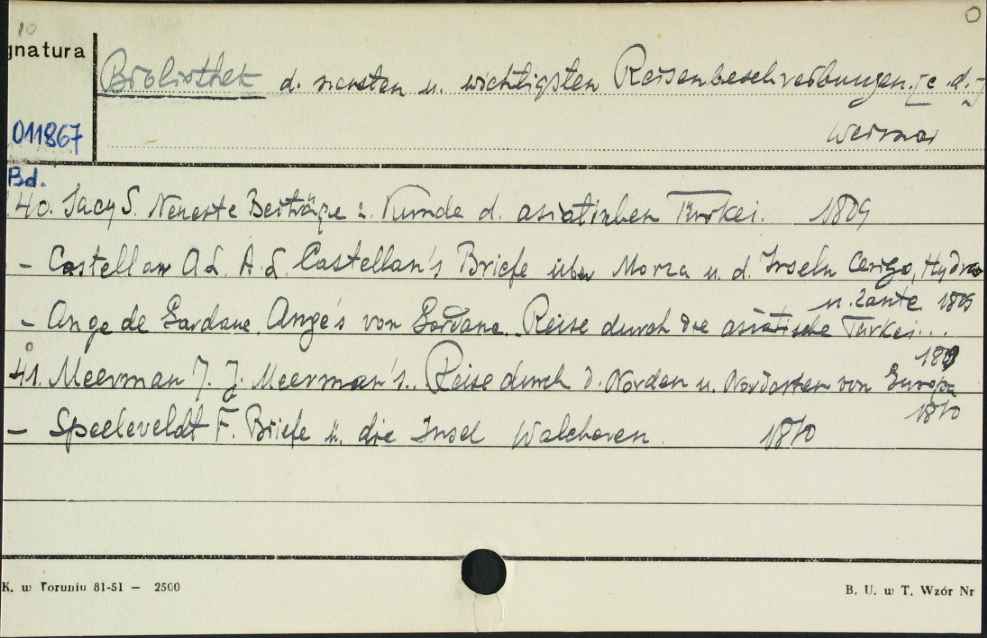 10
gnatura
Bibliothek d. neuesten u. wichtigsten Reisenbeschreibungen. [c. d.]
011867
Weimar
Bd.
40. Sacy S. Neueste Beiträge z. Kunde d. asiatischen Turkei. 1809
– Castellan A L. A. L. Castellan's Briefe über Morea u. d. Inseln Cerigo, Hydra
u. Zante 1809
– Ange de Gardane. Ange's von Gardane. Reise durch die asiatische Turkei...
1809
41. Meerman J. J. Meerman's.. Reise durch d. Norden u. Nordosten von Europa
1810
– Speeleveldt F. Briefe ü. die Insel Walcheren. 1810
K. w Toruniu 81-51 — 2500
B. U. w T. Wzór Nr